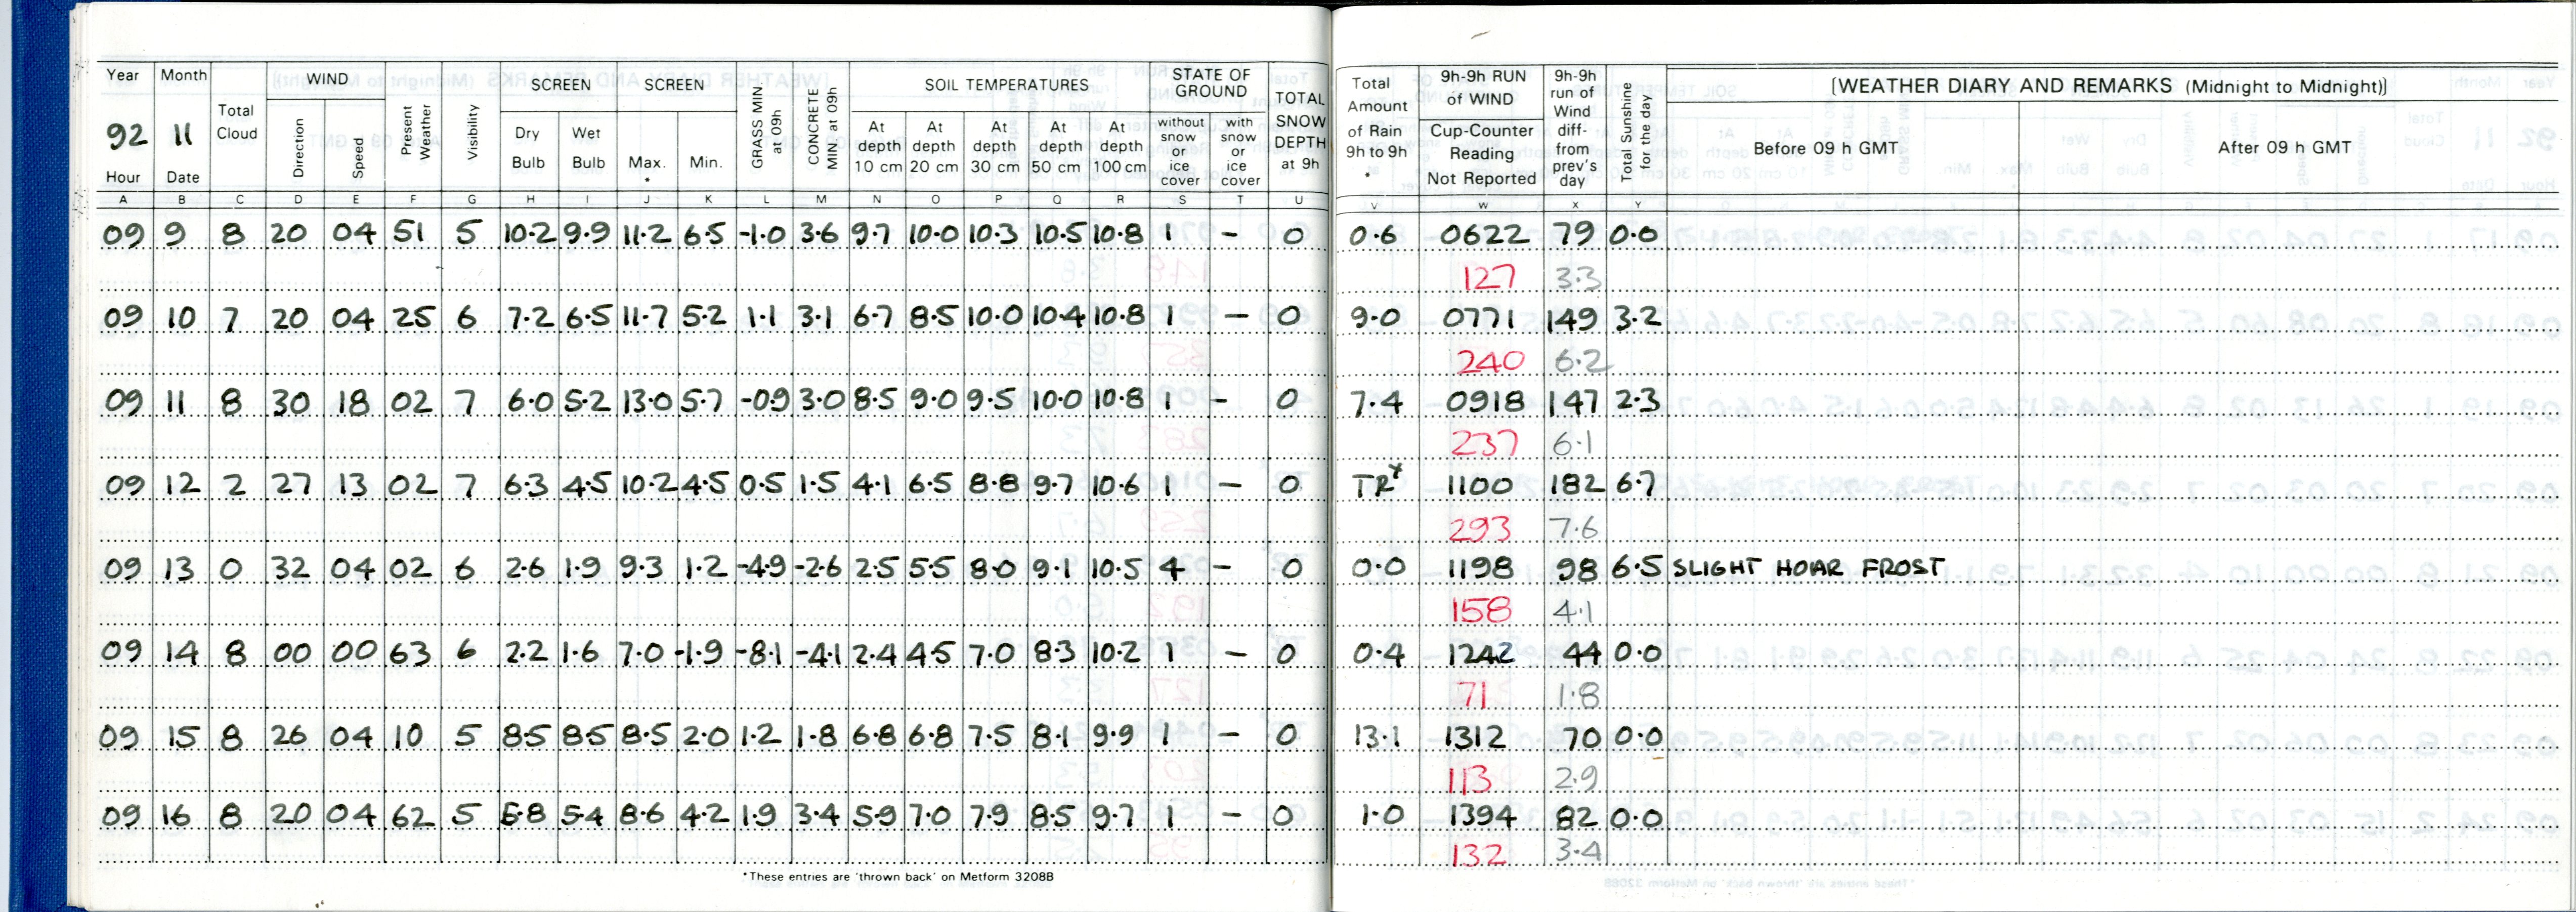 Year Month Total Cloud WIND Direction Speed Present Weather Visibility SCREEN Dry Bulb Wet Bulb SCREEN Max. * Min. GRASS MIN. at 09h CONCRETE MIN. at 09h SOIL TEMPERATURES At depth 10 cm At depth 20 cm At depth 30 cm At depth 50 cm At depth 100 cm STATE OF GROUND without snow or ice cover with snow or ice cover TOTAL SNOW DEPTH at 9h Total Amount of Rain 9h to 9h * 9h-9h RUN of WIND Cup-Counter Reading Not Reported 9h-9h run of Wind diff- from prev's day Total Sunshine for the day [WEATHER DIARY AND REMARKS (Midnight to Midnight)] Before 09 h GMT After 09 h GMT
92 11
Hour Date
A B C D E F G H I J K L M N O P Q R S T U V W X Y
09 9 8 20 04 51 5 10.2 9.9 11.2 6.5 -1.0 3.6 9.7 10.0 10.3 10.5 10.8 1 - 0 0.6 0622 79 0.0
127 3.3
09 10 7 20 04 25 6 7.2 6.5 11.7 5.2 1.1 3.1 6.7 8.5 10.0 10.4 10.8 1 - 0 9.0 0771 149 3.2
240 6.2
09 11 8 30 18 02 7 6.0 5.2 13.0 5.7 -09 3.0 8.5 9.0 9.5 10.0 10.8 1 - 0 7.4 0918 147 2.3
237 6.1
09 12 2 27 13 02 7 6.3 4.5 10.2 4.5 0.5 1.5 4.1 6.5 8.8 9.7 10.6 1 - 0 TR* 1100 182 6.7
293 7.6
09 13 0 32 04 02 6 2.6 1.9 9.3 1.2 -4.9 -2.6 2.5 5.5 8.0 9.1 10.5 4 - 0 0.0 1198 98 6.5 SLIGHT HOAR FROST
158 4.1
09 14 8 00 00 63 6 2.2 1.6 7.0 -1.9 -8.1 -4.1 2.4 4.5 7.0 8.3 10.2 1 - 0 0.4 1242 44 0.0
71 1.8
09 15 8 26 04 10 5 8.5 8.5 8.5 2.0 1.2 1.8 6.8 6.8 7.5 8.1 9.9 1 - 0 13.1 1312 70 0.0
113 2.9
09 16 8 20 04 62 5 5.8 5.4 8.6 4.2 1.9 3.4 5.9 7.0 7.9 8.5 9.7 1 - 0 1.0 1394 82 0.0
132 3.4
*These entries are 'thrown back' on Metform 3208B